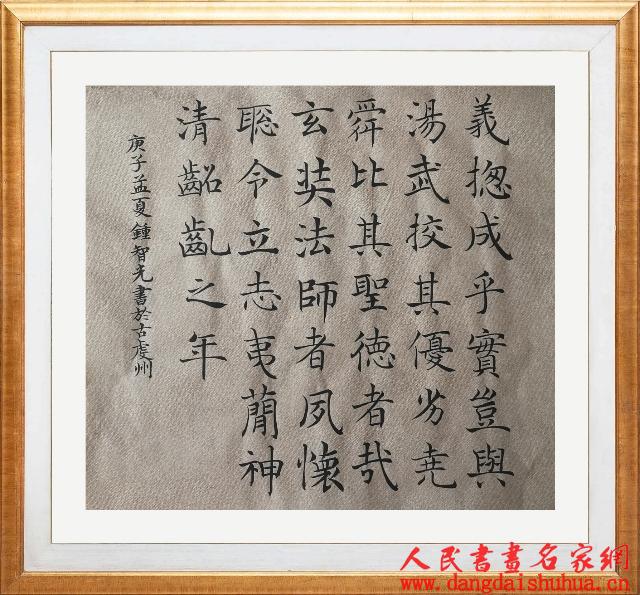 義揔成乎實豈與
湯武挍其優劣堯
舜比其聖德者哉
玄奘法師者夙懷
聡令立志夷蕳神
清齠齓之年
庚子孟夏鍾智光書於古虔州
人民書畫名家網
www.dangdaishuhua.cn